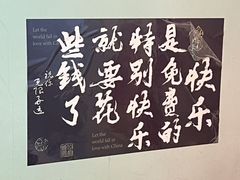 快乐
是免费的
特别快乐
就要花
些錢了
祝你
Let the
world fall in
love with China
Let the
world fall in
love with China